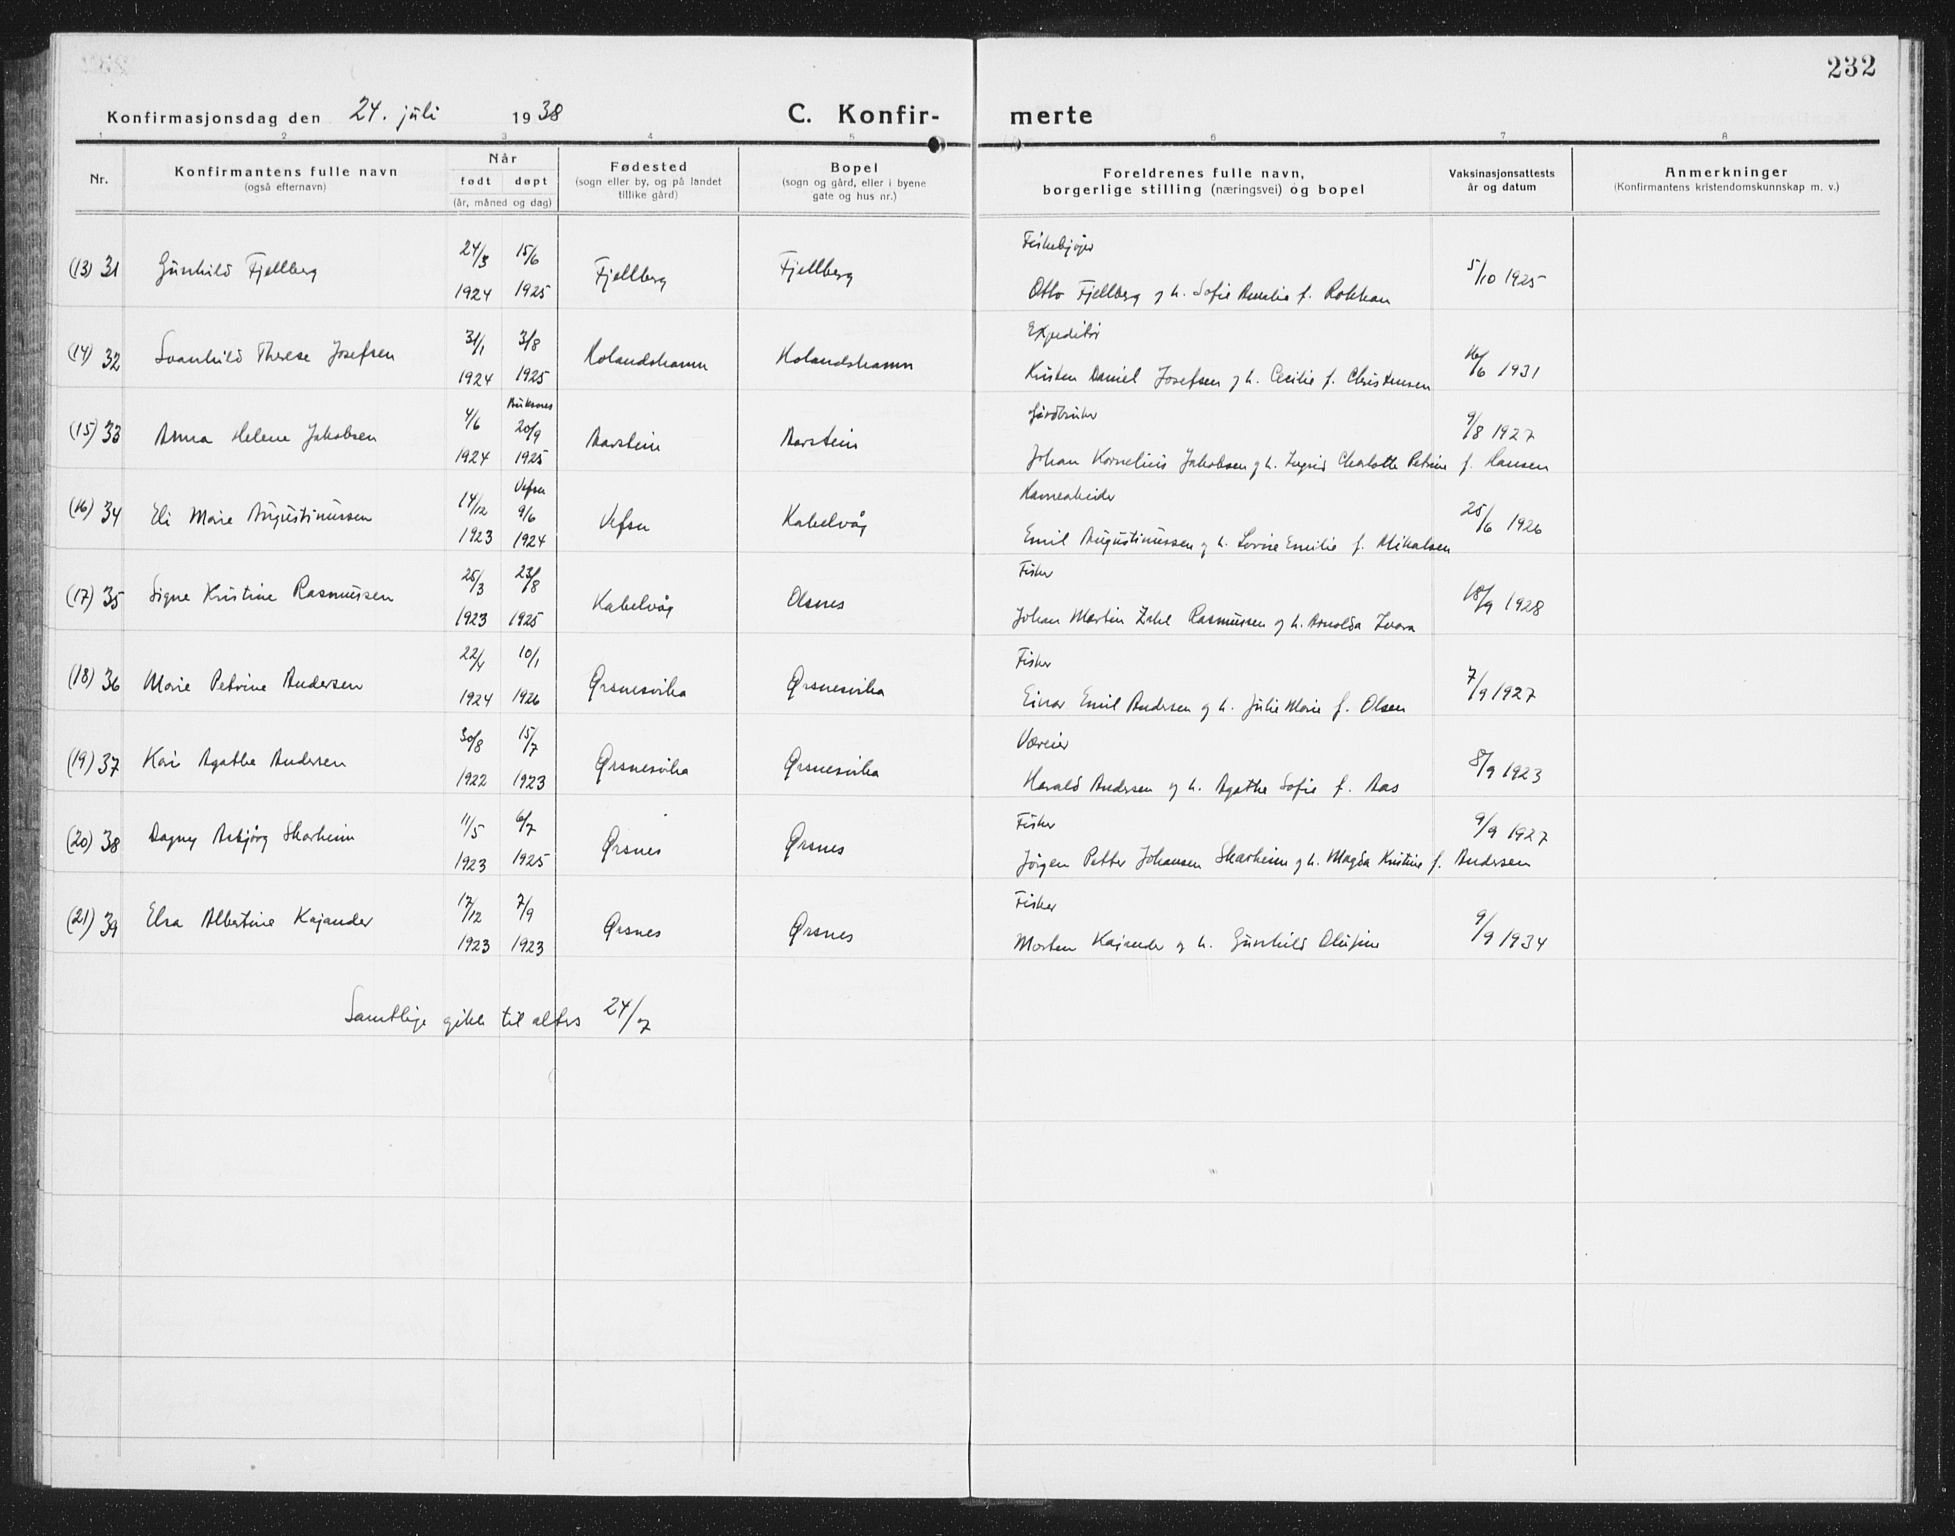 232
Konfirmasjonsdag den 24. juli 1938 C. Konfir- merte
1 2 3 4 5 6 7 8
Nr. Konfirmantens fulle navn (også efternavn) Når født døpt (år, måned og dag) Fødested (sogn eller by, og på landet tillike gård) Bopel (sogn og gård, eller i byene gate og hus nr.) Foreldrenes fulle navn, borgerlige stilling (næringsvei) og bopel Vaksinasjonsattests år og datum Anmerkninger (Konfirmantens kristendomskunnskap m. v.)
24/3 15/6 Fiskekjøper
(13) 31 Gunhild Fjellberg Fjellberg Fjellberg 5/10 1925
1924 1925 Otto Fjellberg og h. Sofie Amalie f. Rokkan
31/1 3/8 Expeditør
(14) 32 Svanhild Therese Josefsen Holandshamn Holandshamn 16/6 1931
1924 1925 Kristen Daniel Josefsen og h. Cecilie f. Christensen
Buksnes
4/6 20/9 Gårdbruker
(15) 33 Anna Helene Jakobsen Aarstein Aarstein 9/8 1927
1924 1925 Johan Kornelius Jakobsen og h. Ingrid Charlotte Petrine f. Hansen
Vefsn
14/12 9/6 Havnearbeider
(16) 34 Eli Marie Augustinussen Vefsn Kabelvåg 25/6 1926
1923 1924 Emil Augustinussen og h. Lovise Emilie f. Mikalsen
25/3 23/8 Fisker
(17) 35 Signe Kristine Rasmussen Kabelvåg Olsnes 18/9 1928
1923 1925 Johan Martin Zahl Rasmussen og h. Arnolda
22/4 10/1 Fisker
(18) 36 Marie Petrine Andersen Ørsnesvika Ørsnesvika 7/9 1927
1924 1926 Einar Emil Andersen og h. Julie Marie f. Olsen
30/8 15/7 Væreier
(19) 37 Kari Agathe Andersen Ørsnesvika Ørsnesvika 8/9 1923
1922 1923 Harald Andersen og h. Agathe Sofie f. Aas
11/5 6/7 Fisker
(20) 38 Dagny Asbjørg Skarheim Ørsnes Ørsnes 9/9 1927
1923 1925 Jørgen Petter Johansen Skarheim og h. Magda Kristine f. Andersen
17/12 7/9 Fisker
(21) 39 Elsa Albertine Kajander Ørsnes Ørsnes 9/9 1934
1923 1923 Morten Kajander og h. Gunhild Olufine
Samtlige gikk til alters 24/7